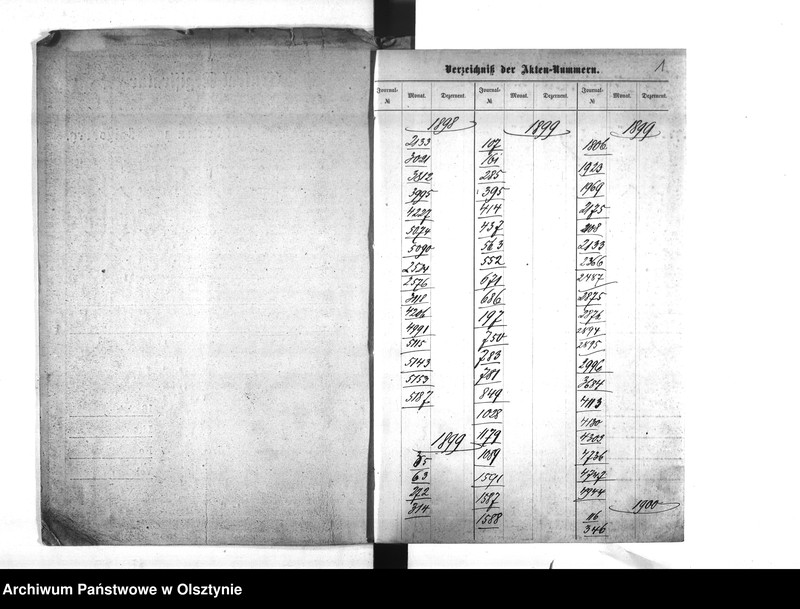 1
Verzeichniß der Akten-Nummern.
Journal- № Monat. Dezernent. Journal- № Monat. Dezernent. Journal- № Monat. Dezernent.
1898
2133
3021
3312
3995
4227
5074
5090
2521
2576
3118
4206
4991
5115
5143
5153
5187
1899
35
63
212
314
1899
107
161
285
395
414
437
563
552
671
686
197
750
783
781
849
1028
1179
1089
1591
1587
1588
1899
1806
1923
1969
2175
208
2133
2366
2487
2875
2876
2894
2895
2996
3684
4113
4180
4303
4736
4747
4944
1900
116
346
Archiwum Państwowe w Olsztynie